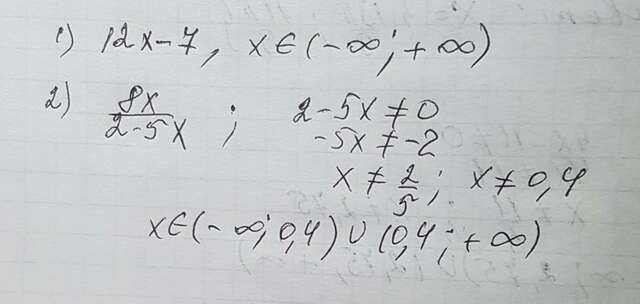 1) 12x-7, x∈(-∞;+∞)
2) 8x/(2-5x) ; 2-5x≠0
-5x≠-2
x≠2/5; x≠0,4
x∈(-∞;0,4)∪(0,4;+∞)